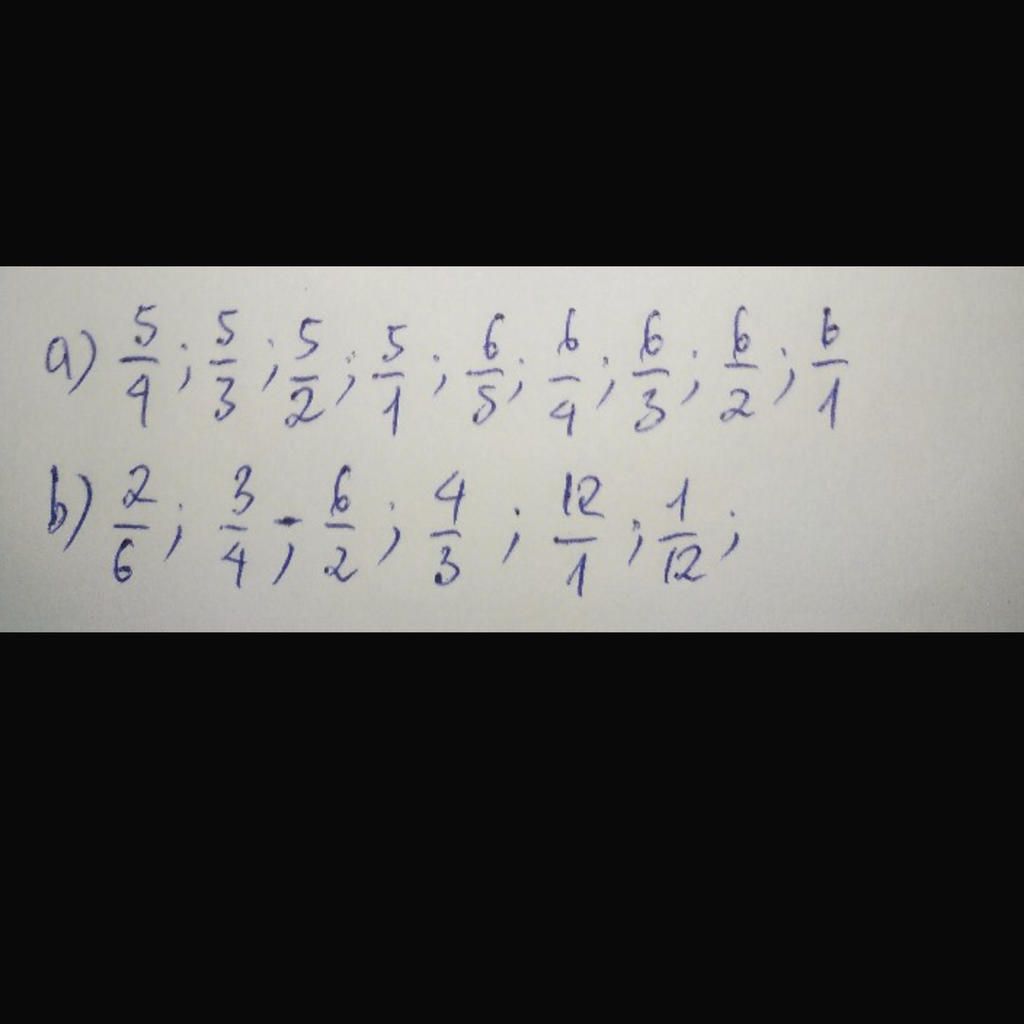 a) 5/4 ; 5/3 ; 5/2 ; 5/1 ; 6/5 ; 6/4 ; 6/3 ; 6/2 ; 6/1
b) 2/6 ; 3/4 ; 6/2 ; 4/3 ; 12/1 ; 1/12 ;